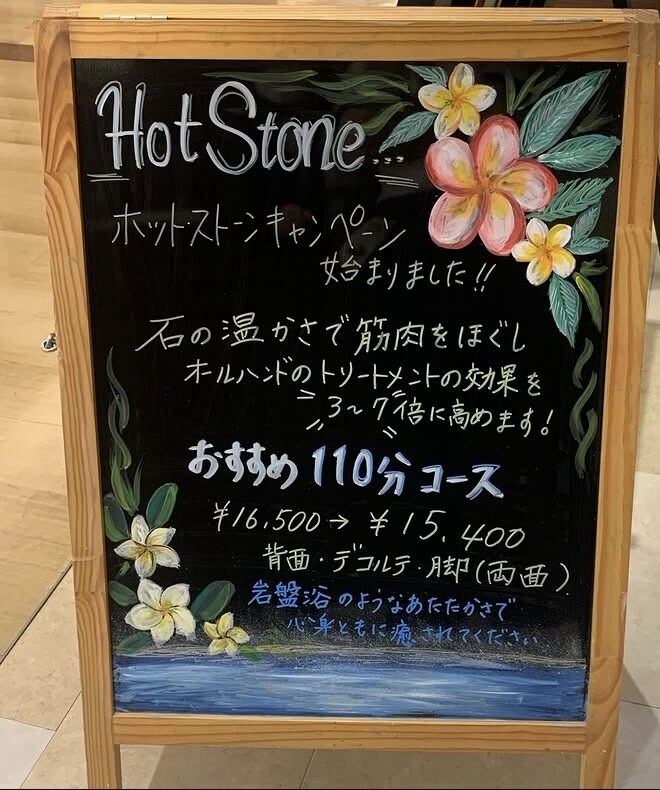 Hot Stone...
ホットストーンキャンペーン
始まりました!!
石の温かさで筋肉をほぐし
オールハンドのトリートメントの効果を
3～7倍に高めます!
おすすめ 110分 コース
¥16,500→ ¥15,400
背面・デコルテ・脚(両面)
岩盤浴のようなあたたかさで
心身ともに癒されてください